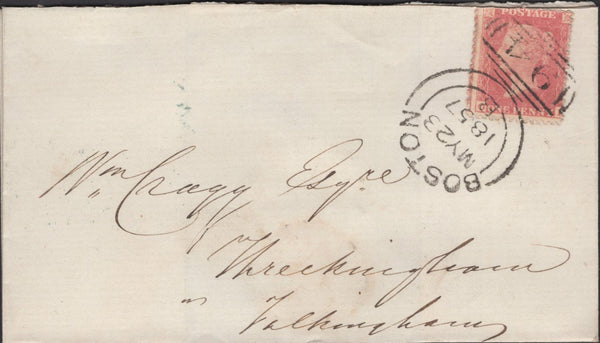 POSTAGE
BOSTON
MY 23
1857
Wm Cragg Esqre
Threckingham
Falkingham